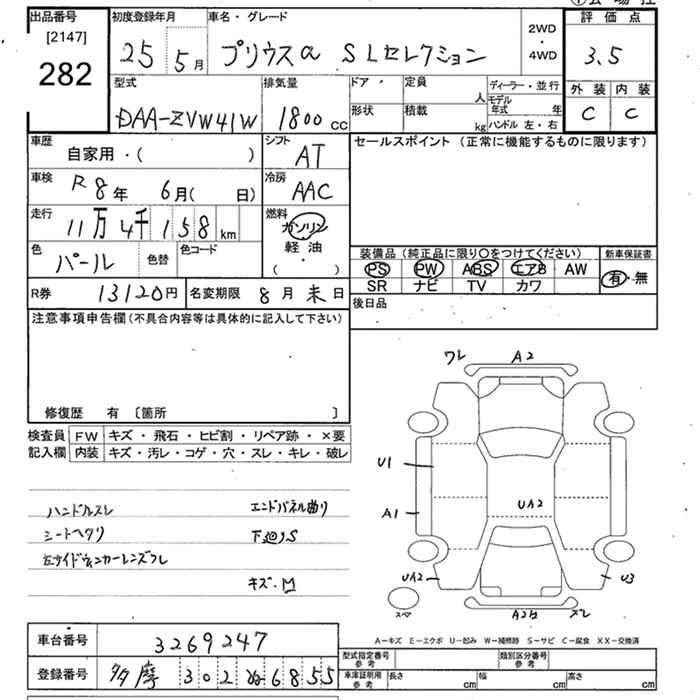 出品番号
[2147]
282
初度登録年月
25 5月
車名・グレード
プリウスα SLセレクション
2WD
・
4WD
評価点
3.5
外装 内装
C C
型式
DAA-ZVW41W
排気量
1800 cc
ドア・
形状
定員
人
積載
kg
ディーラー・並行
モデル
年式 年
ハンドル 左・右
車歴
自家用・( )
シフト
AT
セールスポイント (正常に機能するものに限ります)
車検
R8年 6月( 日)
冷房
AAC
走行
11万4千158km
燃料
ガソリン
・
軽油
( )
色
パール
色替
色コード
装備品 (純正品に限り○をつけてください)
PS PW ABS エアB AW
SR ナビ TV カワ
新車保証書
有・無
R券
13120円
名変期限
8月末日
後日品
注意事項申告欄(不具合内容等は具体的に記入して下さい)
修復歴 有 〔箇所 〕
検査員
記入欄
FW キズ・飛石・ヒビ割・リペア跡・×要
内装 キズ・汚レ・コゲ・穴・スレ・キレ・破レ
ハンドルスレ
シートヘタリ
左サイドウィンカーレンズワレ
エンドパネル曲り
下廻りS
キズ・凹
ワレ
A2
U1
A1
UA2
UA2
U3
A2B
ズレ
スペア
A-キズ E-エクボ U-凹み W-補修跡 S-サビ C-腐食 XX-交換済
車台番号
3269247
登録番号
多摩 302 ぬ 6855
型式指定番号
参考
類別区分番号
参考
車庫証明用
参考
長さ cm
幅 cm
高さ cm